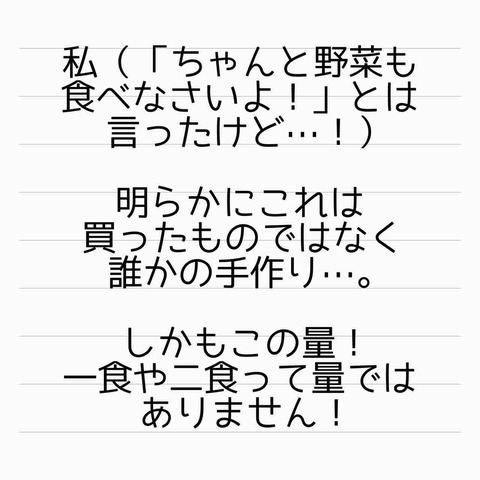 私（「ちゃんと野菜も
食べなさいよ！」とは
言ったけど…！）
明らかにこれは
買ったものではなく
誰かの手作り…。
しかもこの量！
一食や二食って量では
ありません！